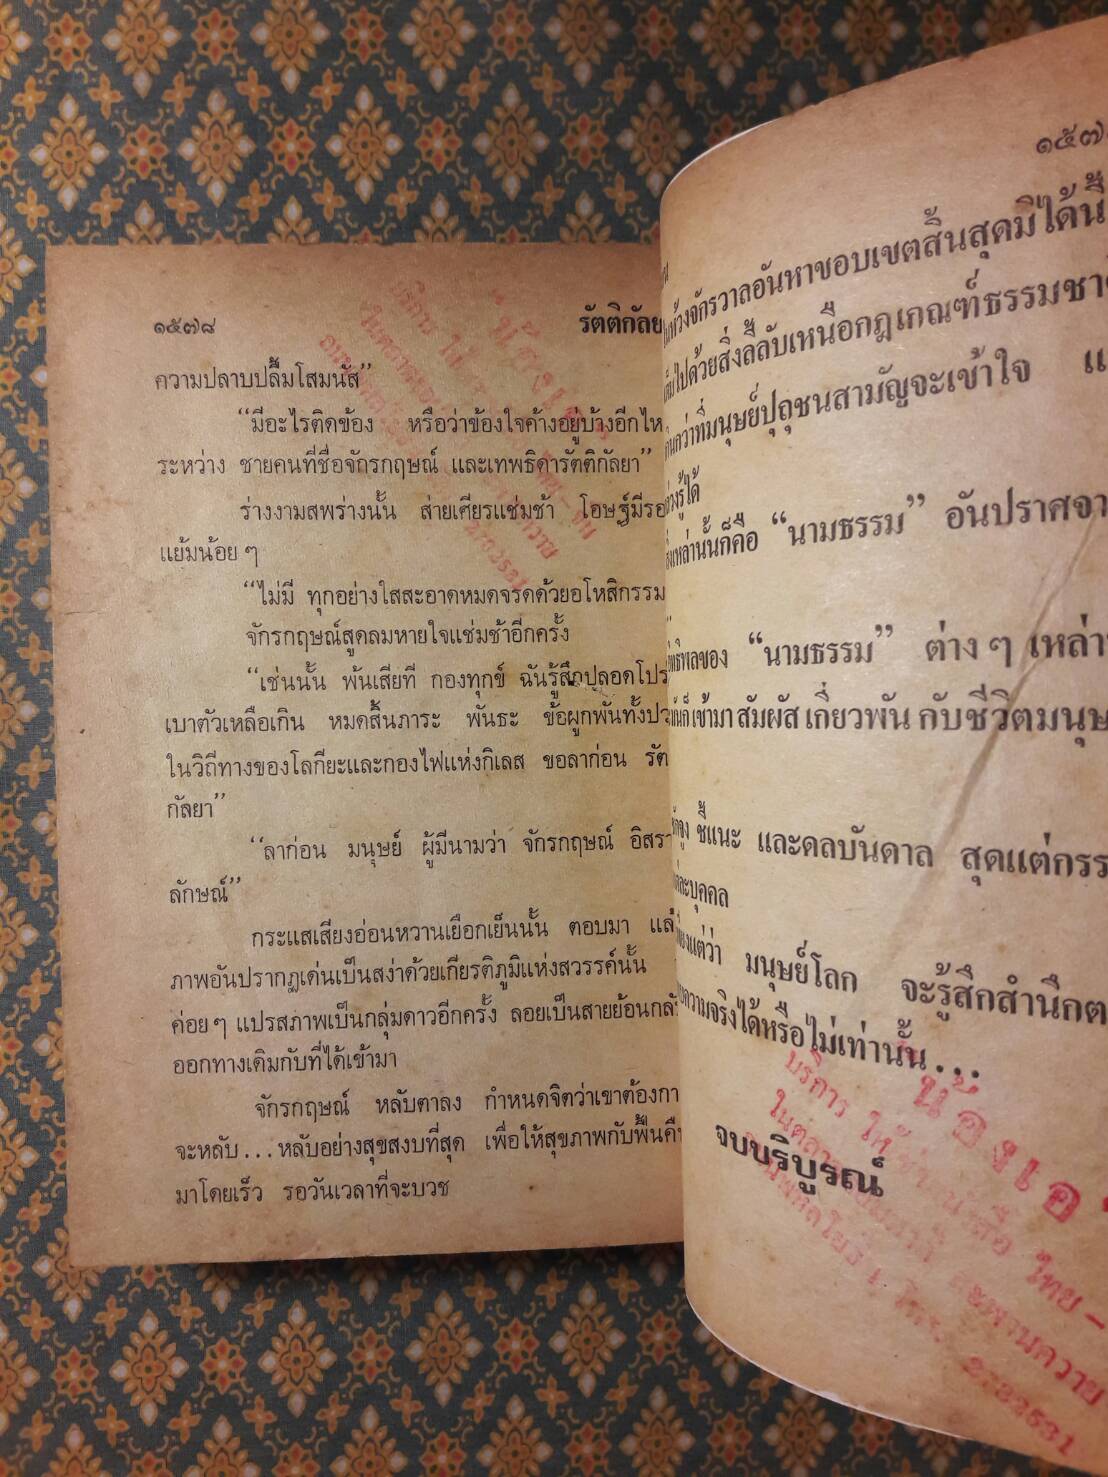 ๑๕๗๘
รัตติกัลย
ความปลาบปลื้มโสมนัส”
“มีอะไรติดข้อง หรือว่าข้องใจค้างอยู่บ้างอีกไห
ระหว่าง ชายคนที่ชื่อจักรกฤษณ์ และเทพธิดารัตติกัลยา”
ร่างงามสพร่างนั้น ส่ายเศียรแช่มช้า โอษฐ์มีรอ
แย้มน้อย ๆ
“ไม่มี ทุกอย่างใสสะอาดหมดจรดด้วยอโหสิกรรม
จักรกฤษณ์สูดลมหายใจแช่มช้าอีกครั้ง
“เช่นนั้น พ้นเสียที กองทุกข์ ฉันรู้สึกปลอดโปร
เบาตัวเหลือเกิน หมดสิ้นภาระ พันธะ ข้อผูกพันทั้งปว
ในวิถีทางของโลกียะและกองไฟแห่งกิเลส ขอลาก่อน รัต
กัลยา”
“ลาก่อน มนุษย์ ผู้มีนามว่า จักรกฤษณ์ อิสรา
ลักษณ์”
กระแสเสียงอ่อนหวานเยือกเย็นนั้น ตอบมา แล้
ภาพอันปรากฏเด่นเป็นสง่าด้วยเกียรติภูมิแห่งสวรรค์นั้น
ค่อย ๆ แปรสภาพเป็นกลุ่มดาวอีกครั้ง ลอยเป็นสายย้อนกลั
ออกทางเดิมกับที่ได้เข้ามา
จักรกฤษณ์ หลับตาลง กำหนดจิตว่าเขาต้องกา
จะหลับ...หลับอย่างสุขสงบที่สุด เพื่อให้สุขภาพกับฟื้นคืน
มาโดยเร็ว รอวันเวลาที่จะบวช
๑๕๗
ห้วงจักรวาลอันหาขอบเขตสิ้นสุดมิได้นี้
ไปด้วยสิ่งลี้ลับเหนือกฎเกณฑ์ธรรมชาติ
กว่าที่มนุษย์ปุถุชนสามัญจะเข้าใจ แ
รู้ได้
เหล่านั้นก็คือ “นามธรรม” อันปราศจา
ของ “นามธรรม” ต่าง ๆ เหล่า
ก็เข้ามาสัมผัสเกี่ยวพันกับชีวิตมนุษ
จูง ชี้แนะ และดลบันดาล สุดแต่กรร
บุคคล
แต่ว่า มนุษย์โลก จะรู้สึกสำนึกต
ความจริงได้หรือไม่เท่านั้น...
จบบริบูรณ์
น้องเอ
บริการ ให้เช่าหนังสือ ไทย –
สะพานควาย